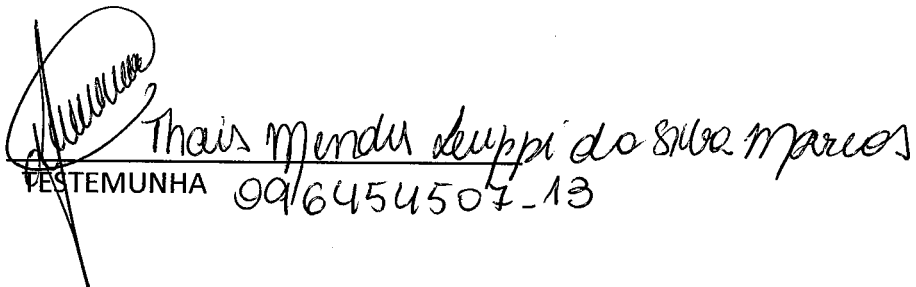 Thais Mendes Leuppi da Silva Marcos
TESTEMUNHA
096454507-13